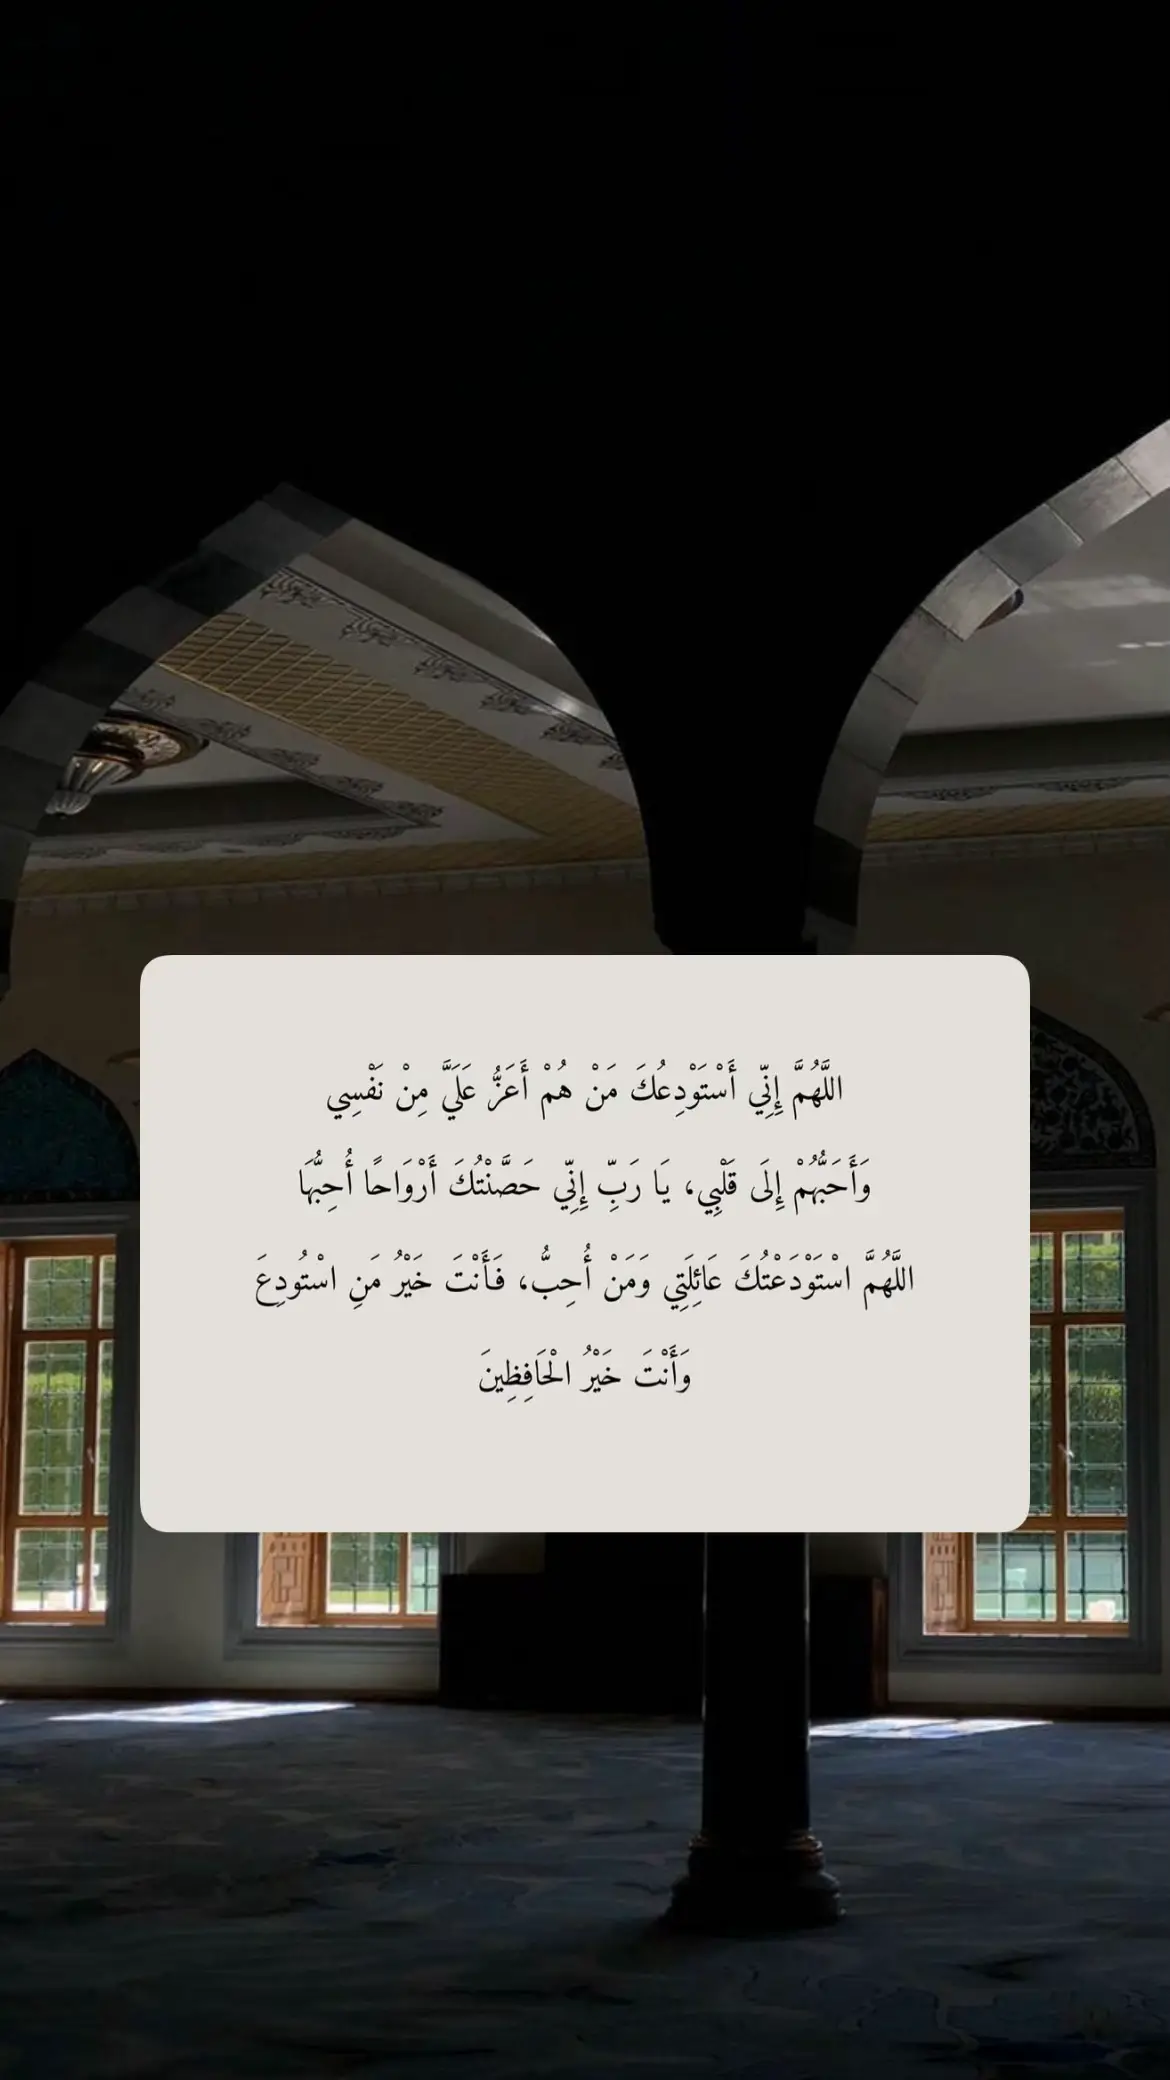 اللَّهُمَّ إِنِّي أَسْتَوْدِعُكَ مَنْ هُمْ أَعَزُّ عَلَيَّ مِنْ نَفْسِي
وَأَحَبُّهُمْ إِلَى قَلْبِي، يَا رَبِّ إِنِّي حَصَّنْتُكَ أَرْوَاحًا أُحِبُّهَا
اللَّهُمَّ اسْتَوْدَعْتُكَ عَائِلَتِي وَمَنْ أُحِبُّ، فَأَنْتَ خَيْرُ مَنِ اسْتُودِعَ
وَأَنْتَ خَيْرُ الْحَافِظِينَ